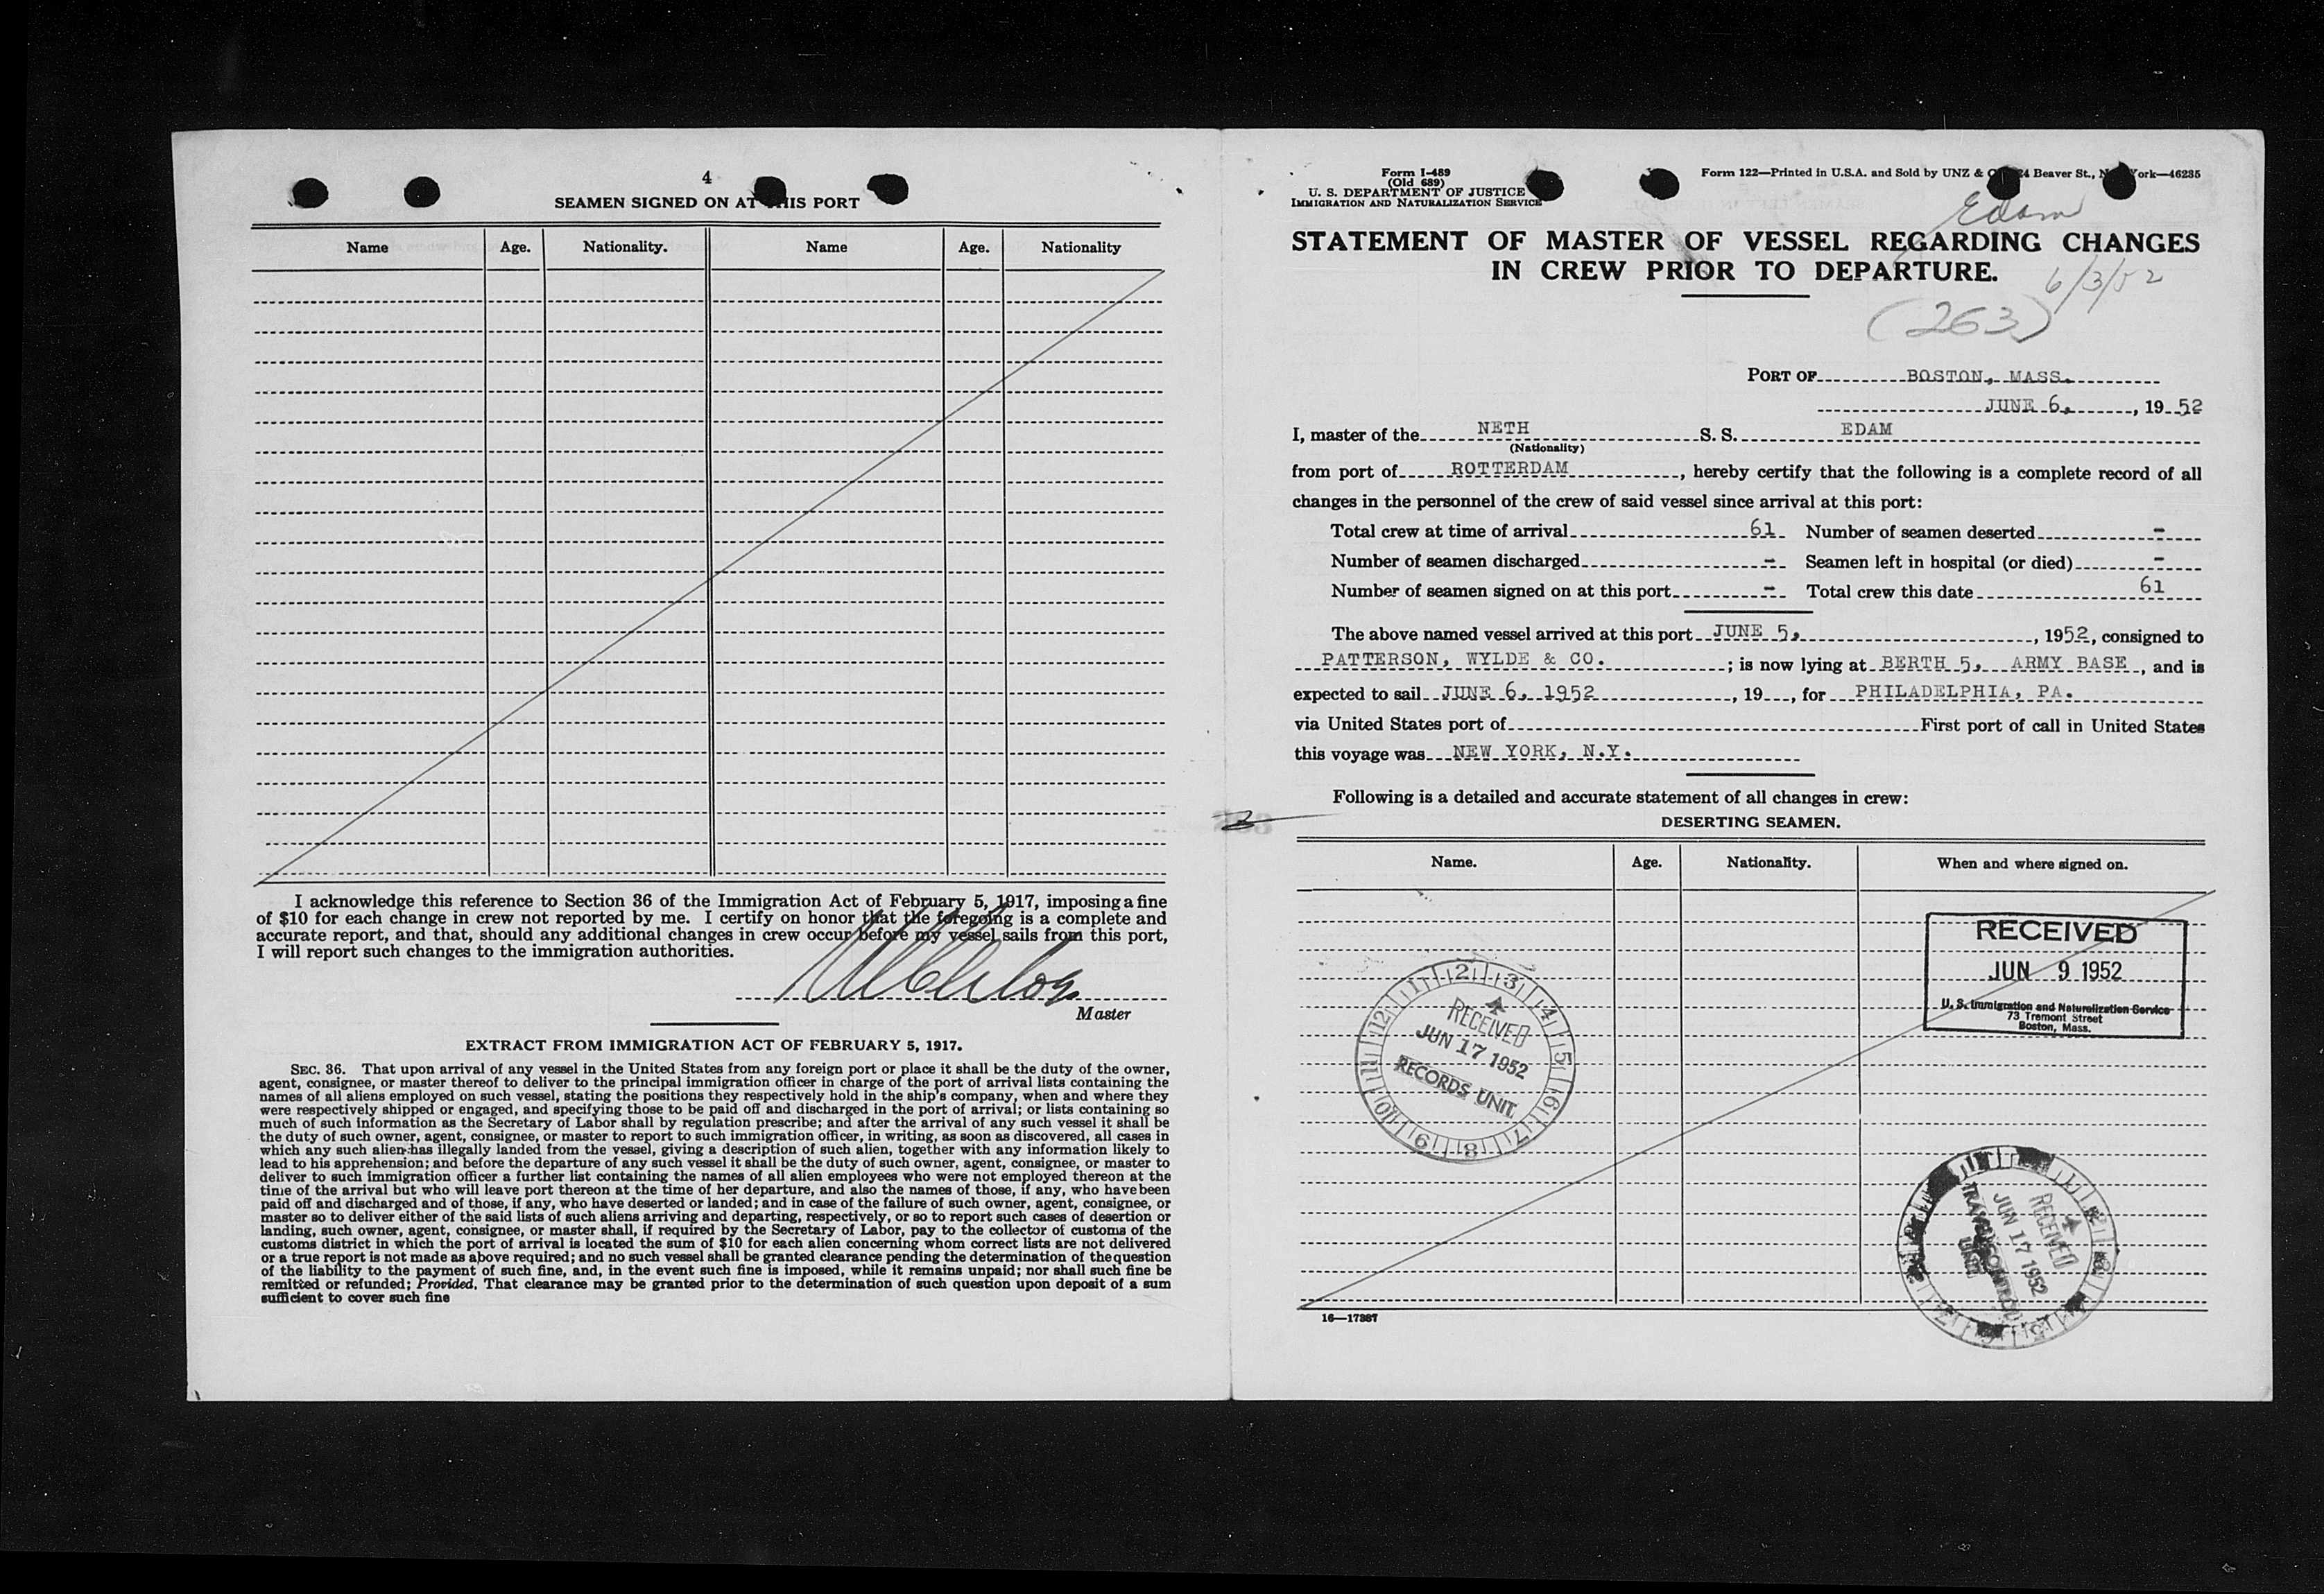 4
SEAMEN SIGNED ON AT THIS PORT
Name Age. Nationality. Name Age. Nationality
I acknowledge this reference to Section 36 of the Immigration Act of February 5, 1917, imposing a fine
of $10 for each change in crew not reported by me. I certify on honor that the foregoing is a complete and
accurate report, and that, should any additional changes in crew occur before my vessel sails from this port,
I will report such changes to the immigration authorities.
Master
EXTRACT FROM IMMIGRATION ACT OF FEBRUARY 5, 1917.
SEC. 36. That upon arrival of any vessel in the United States from any foreign port or place it shall be the duty of the owner,
agent, consignee, or master thereof to deliver to the principal immigration officer in charge of the port of arrival lists containing the
names of all aliens employed on such vessel, stating the positions they respectively hold in the ship's company, when and where they
were respectively shipped or engaged, and specifying those to be paid off and discharged in the port of arrival; or lists containing so
much of such information as the Secretary of Labor shall by regulation prescribe; and after the arrival of any such vessel it shall be
the duty of such owner, agent, consignee, or master to report to such immigration officer, in writing, as soon as discovered, all cases in
which any such alien has illegally landed from the vessel, giving a description of such alien, together with any information likely to
lead to his apprehension; and before the departure of any such vessel it shall be the duty of such owner, agent, consignee, or master to
deliver to such immigration officer a further list containing the names of all alien employees who were not employed thereon at the
time of the arrival but who will leave port thereon at the time of her departure, and also the names of those, if any, who have been
paid off and discharged and of those, if any, who have deserted or landed; and in case of the failure of such owner, agent, consignee, or
master so to deliver either of the said lists of such aliens arriving and departing, respectively, or so to report such cases of desertion or
landing, such owner, agent, consignee, or master shall, if required by the Secretary of Labor, pay to the collector of customs of the
customs district in which the port of arrival is located the sum of $10 for each alien concerning whom correct lists are not delivered
or a true report is not made as above required; and no such vessel shall be granted clearance pending the determination of the question
of the liability to the payment of such fine, and, in the event such fine is imposed, while it remains unpaid; nor shall such fine be
remitted or refunded; Provided, That clearance may be granted prior to the determination of such question upon deposit of a sum
sufficient to cover such fine
Form I-489
(Old 689)
U. S. DEPARTMENT OF JUSTICE
IMMIGRATION AND NATURALIZATION SERVICE
Form 122—Printed in U.S.A. and Sold by UNZ & 24 Beaver St., New York—46235
Edam
STATEMENT OF MASTER OF VESSEL REGARDING CHANGES
IN CREW PRIOR TO DEPARTURE.
6/3/52
(263)
PORT OF BOSTON, MASS.
JUNE 6, , 19 52
I, master of the NETH S. S. EDAM
(Nationality)
from port of ROTTERDAM , hereby certify that the following is a complete record of all
changes in the personnel of the crew of said vessel since arrival at this port:
Total crew at time of arrival 61 Number of seamen deserted -
Number of seamen discharged - Seamen left in hospital (or died) -
Number of seamen signed on at this port - Total crew this date 61
The above named vessel arrived at this port JUNE 5, , 1952, consigned to
PATTERSON, WYLDE & CO. ; is now lying at BERTH 5, ARMY BASE , and is
expected to sail JUNE 6, 1952 , 19 , for PHILADELPHIA, PA.
via United States port of First port of call in United States
this voyage was NEW YORK, N.Y.
Following is a detailed and accurate statement of all changes in crew:
DESERTING SEAMEN.
Name. Age. Nationality. When and where signed on.
RECEIVED
JUN 9 1952
U. S. Immigration and Naturalization Service
73 Tremont Street
Boston, Mass.
1 2 3 4 5 6 7 8 9 10 11 12
RECEIVED
JUN 17 1952
RECORDS UNIT
RECEIVED
JUN 17 1952
TRAVEL CONTROL
UNIT
16—17387